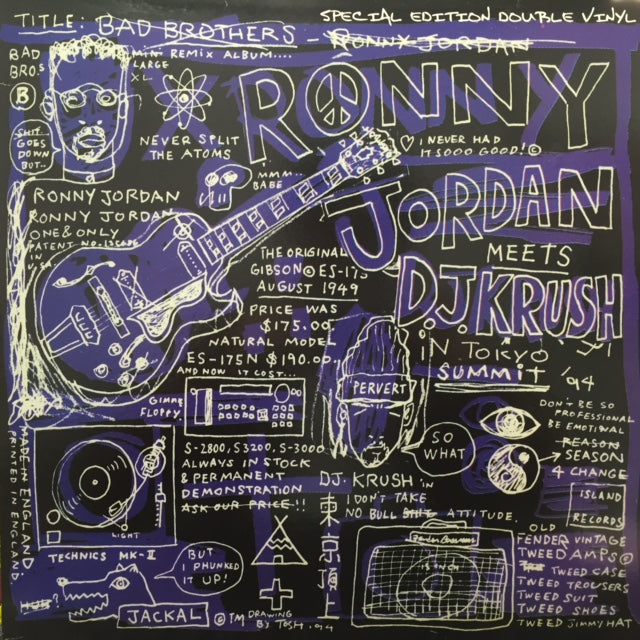 TITLE: BAD BROTHERS - RONNY JORDAN
SPECIAL EDITION DOUBLE VINYL
BAD
BRO.S
B
MINI REMIX ALBUM....
LARGE
XL.
SHIT
GOES
DOWN
BUT..
NEVER SPLIT
THE ATOMS
RONNY
♡ I NEVER HAD
IT SOOO GOOD! ©
MMM...
BABE
JORDAN
MEETS
DJ. KRUSH
IN TOKYO
SUMMIT / '94
RONNY JORDAN
RONNY JORDAN
ONE & ONLY
PATENT NO.
IN
USA
THE ORIGINAL
GIBSON © ES-175
AUGUST 1949
PRICE WAS
$175.00.
NATURAL MODEL
ES-175N $190.00..
AND NOW IT COST...
GIMME
FLOPPY.
PERVERT
SO
WHAT
DON'T BE SO
PROFESSIONAL
BE EMOTIWAL
REASON
→ SEASON
4 CHANGE
ISLAND
RECORDS
S-2800, S3200, S-3000
ALWAYS IN STOCK
& PERMANENT
DEMONSTRATION
ASK OUR PRICE!!
DJ. KRUSH in
I DON'T TAKE
NO BULL SHIT ATTITUDE.
東京
MADE IN ENGLAND
PRINTED IN ENGLAND
LIGHT
TECHNICS MK-II
BUT
I PHUNKED
IT UP!
JACKAL
© TM DRAWING
BY TOSH .94
OLD
FENDER VINTAGE
TWEED AMPS ©
TWEED CASE
TWEED TROUSERS
TWEED SUIT
TWEED SHOES
TWEED JIMMY HAT